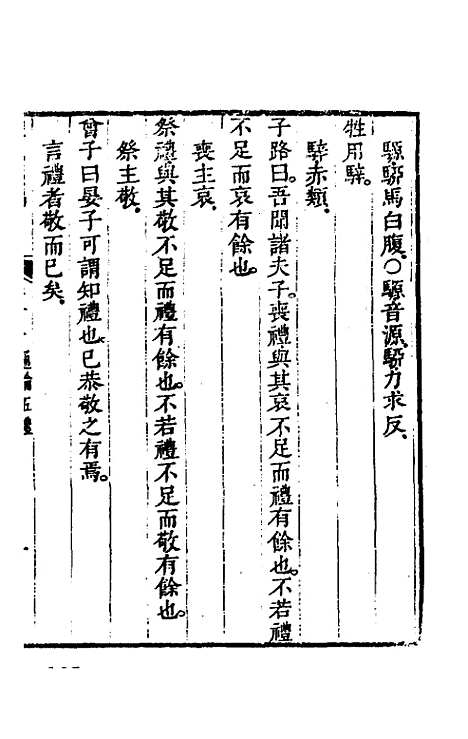 騵騮馬白腹、○騵音源、騮力求反、
牲用騂。
騂赤類、
子路曰。吾聞諸夫子。喪禮與其哀不足而禮有餘也。不若禮
不足而哀有餘也。
喪主哀、
祭禮與其敬不足而禮有餘也。不若禮不足而敬有餘也。
祭主敬、
曾子曰晏子可謂知禮也已恭敬之有焉。
言禮者敬而已矣、